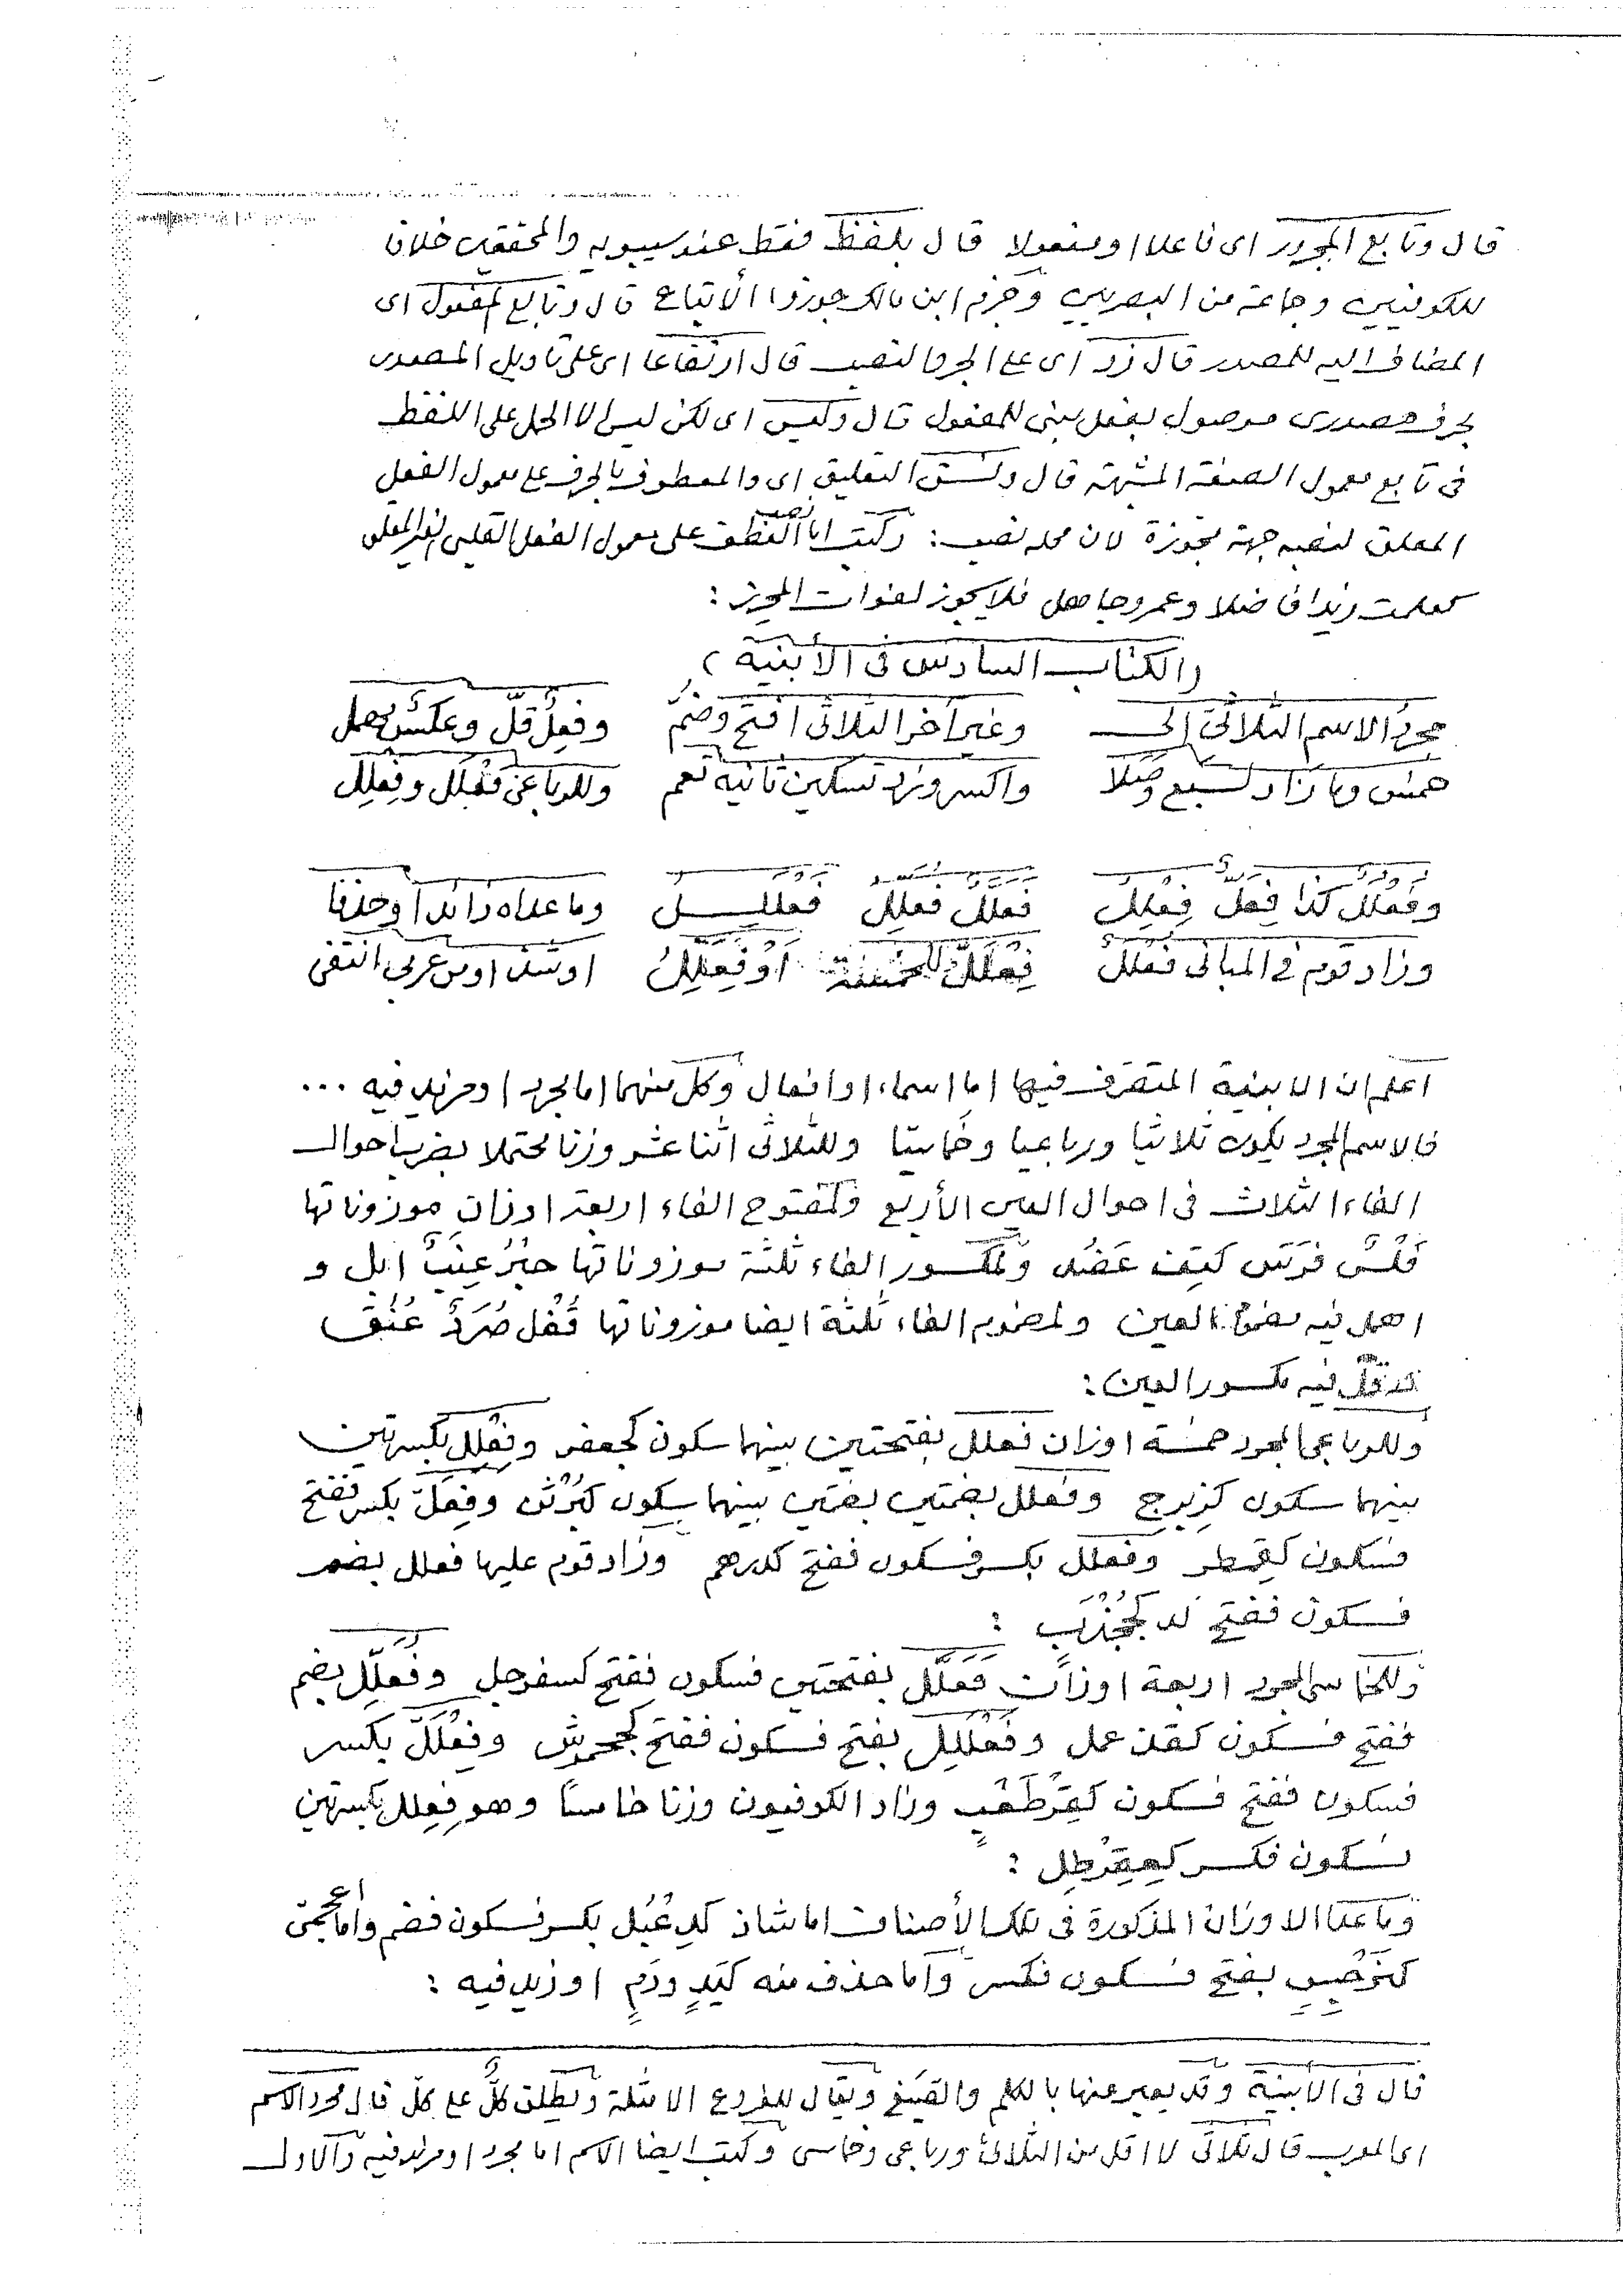 قال وتابع المجرور اى فاعلا او مفعولا قال بلفظ فقط عند سيبويه والمحققين خلافا
للكوفيين وجماعة من البصريين وجزم ابن مالك جوزوا الأتباع قال وتابع لمفعول اى
المضاف اليه للمصدر قال زد اى على الجر والنصب قال ارتفاعا اى على تاويل المصدر
بحرف مصدرى موصول بفعل مبنى للمفعول قال وليس اى لكن ليس الا الحمل على اللفظ
فى تابع معمول الصفة المشبهة قال ونسق التعليق اى والمعطوف بالحرف على معمول الفعل
المعلق لنصبه جهة مجوزة لان محله نصب : وكتب اما نصب العطف على معمول الفعل القلبى الغير المعلق
كعلمت زيدا فاضلا وعمرو جاهل فلا يجوز لفوات المحرز :
(الكتاب السادس فى الأبنية)
مجرد الاسم الثلاثى الى وغير آخر الثلاثى افتح وضم وفعل قل وعكس يهمل
خمس وما زاد لسبع وصلا واكسر وزد تسكين ثانيه تعم وللرباعى فعلل وفعلل
وفعلل كذا فعلّ فعلل فعلل فعلل فعلليل وما عداه زائد او حذفا
وزاد قوم فى المبانى فعلل فعلل للخمسة او فعلل او شذ او من عربى انتفى
اعلم ان الابنية المتصرف فيها اما اسماء او افعال وكل منهما اما مجرد او مزيد فيه ...
فالاسم المجرد يكون ثلاثيا ورباعيا وخماسيا وللثلاثى اثنا عشر وزنا محتملا بضرب احوال
الفاء الثلاث فى احوال العين الأربع ولمفتوح الفاء اربعة اوزان موزوناتها
فلس فرس كتف عضد ولمكسور الفاء ثلثة موزوناتها حبر عنب ابل و
اهمل فيه مضموم العين ولمضموم الفاء ثلثة ايضا موزوناتها قفل صرد عنق
قد قل فيه مكسور العين :
وللرباعى المجرد خمسة اوزان فعلل بفتحتين بينهما سكون كجعفر وفعلل بكسرتين
بينهما سكون كزبرج وفعلل بضمتين بضمتين بينهما سكون كبرثن وفعلّ بكسر ففتح
فسكون كقمطر وفعلل بكسر فسكون ففتح كدرهم وزاد قوم عليها فعلل بضم
فسكون ففتح كجخدب :
وللخماسى المجرد اربعة اوزان فعلل بفتحتين فسكون ففتح كسفرجل وفعلل بضم
ففتح فسكون كقذعمل وفعللل بفتح فسكون ففتح كجحمرش وفعلل بكسر
فسكون ففتح فسكون كقرطعب وزاد الكوفيون وزنا خامسا وهو فعلل بكسرتين
بسكون فكسر :
وما عدا الاوزان المذكورة فى تلك الأصناف اما شاذ بكسر فسكون فضم واما اعجمى
كنرجس بفتح فسكون فكسر واما حذف منه كيد ودم او زيد فيه :
قال فى الأبنية وقد يعبر عنها بالكلم والصيغ ويقال للفروع الامثلة ويطلق كل على كل قال مجرد الاسم
اى المعرب قال ثلاثى لا اقل من الثلاثى ورباعى وخماسى وكتب ايضا الاسم اما مجرد او مزيد فيه والاول